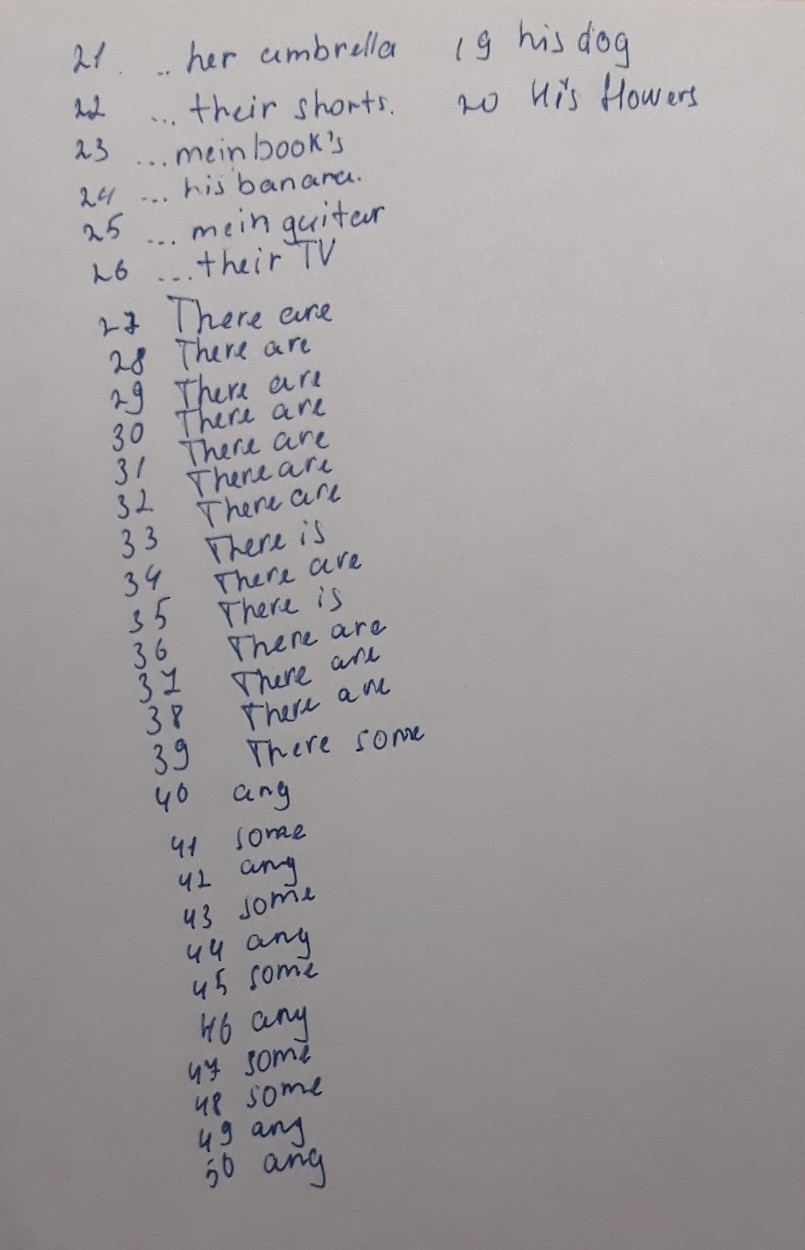 21. .. her umbrella 19 his dog
22 ... their shorts. 20 His flowers
23 ... mein book's
24 ... his banana.
25 ... mein guitar
26 ... their TV
27 There are
28 There are
29 There are
30 There are
31 There are
32 There are
33 There are
34 There is
35 There are
36 There is
37 There are
38 There are
39 There are
40 There some
41 any
42 some
43 any
44 some
45 any
46 some
47 any
48 some
49 some
50 any
any